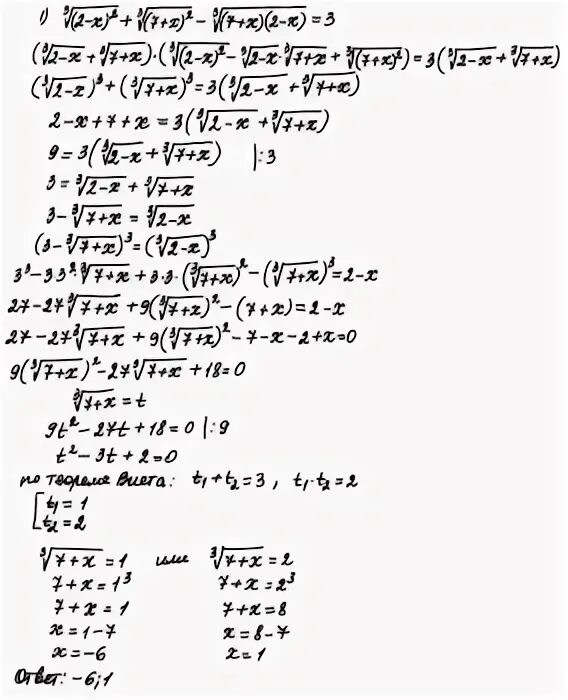 1) ∛(2-x)² + ∛(7+x)² - ∛(7+x)(2-x) = 3
(∛2-x + ∛7+x)·(∛(2-x)² - ∛2-x·∛7+x + ∛(7+x)²) = 3(∛2-x + ∛7+x)
(∛2-x)³ + (∛7+x)³ = 3(∛2-x + ∛7+x)
2-x+7+x = 3(∛2-x + ∛7+x)
9 = 3(∛2-x + ∛7+x) |:3
3 = ∛2-x + ∛7+x
3 - ∛7+x = ∛2-x
(3 - ∛7+x)³ = (∛2-x)³
3³ - 3·3²·∛7+x + 3·3·(∛7+x)² - (∛7+x)³ = 2-x
27 - 27∛7+x + 9(∛7+x)² - (7+x) = 2-x
27 - 27∛7+x + 9(∛7+x)² - 7 - x - 2 + x = 0
9(∛7+x)² - 27∛7+x + 18 = 0
∛7+x = t
9t² - 27t + 18 = 0 |:9
t² - 3t + 2 = 0
по теореме Виета: t₁ + t₂ = 3, t₁·t₂ = 2
[t₁ = 1
t₂ = 2
∛7+x = 1 или ∛7+x = 2
7+x = 1³ 7+x = 2³
7+x = 1 7+x = 8
x = 1-7 x = 8-7
x = -6 x = 1
Ответ: -6; 1